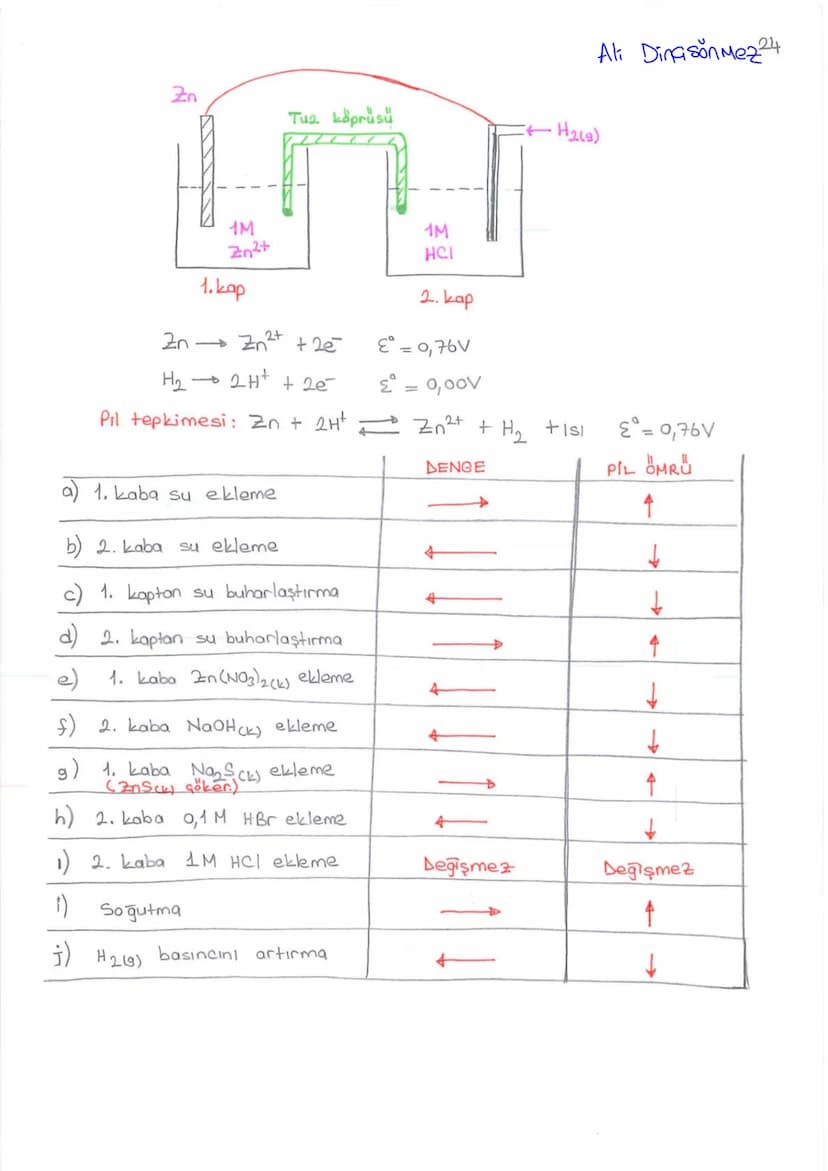 Ali Dinçsönmez 24
Zn
Tuz köprüsü
H2(g)
1M
Zn2+
1M
HCl
1. kap
2. kap
Zn → Zn2+ + 2e- ε° = 0,76V
H2 → 2H+ + 2e- ε° = 0,00V
Pil tepkimesi: Zn + 2H+ ⇌ Zn2+ + H2 + ısı ε° = 0,76V
DENGE PİL ÖMRÜ
a) 1. kaba su ekleme → ↑
b) 2. kaba su ekleme ← ↓
c) 1. kaptan su buharlaştırma ← ↓
d) 2. kaptan su buharlaştırma → ↑
e) 1. kaba Zn(NO3)2(k) ekleme ← ↓
f) 2. kaba NaOH(k) ekleme ← ↓
g) 1. kaba Na2S(k) ekleme → ↑
(ZnS(k) çöker.)
h) 2. kaba 0,1 M HBr ekleme ← ↓
ı) 2. kaba 1M HCl ekleme Değişmez Değişmez
i) Soğutma → ↑
j) H2(g) basıncını artırma ← ↓